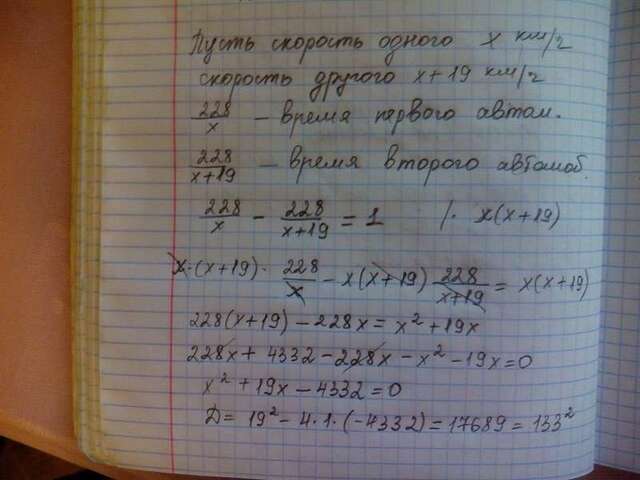 Пусть скорость одного x км/ч
скорость другого x+19 км/ч
228/x – время первого автом.
228/(x+19) – время второго автомоб.
228/x – 228/(x+19) = 1 /· x(x+19)
x·(x+19)· 228/x – x(x+19) 228/(x+19) = x(x+19)
228(x+19) – 228x = x² + 19x
228x + 4332 – 228x – x² – 19x = 0
x² + 19x – 4332 = 0
D = 19² – 4·1·(–4332) = 17689 = 133²